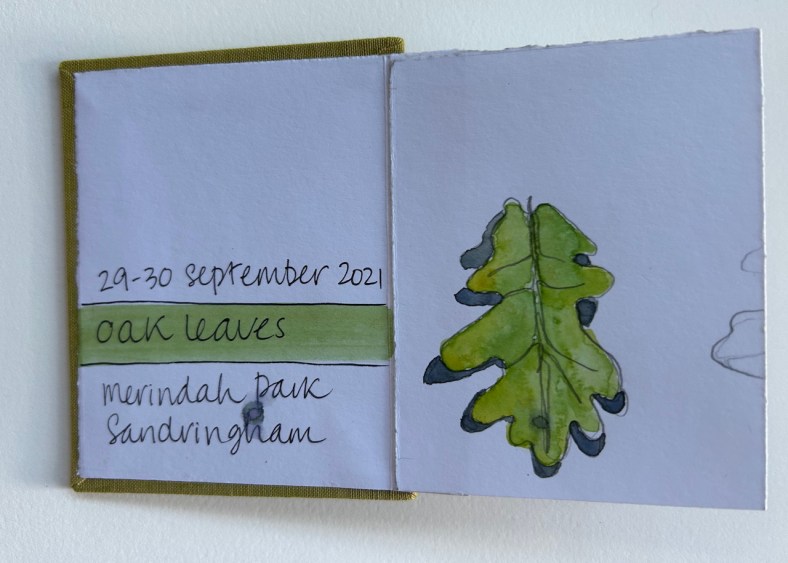 29-30 September 2021
oak leaves
merindah Park
Sandringham